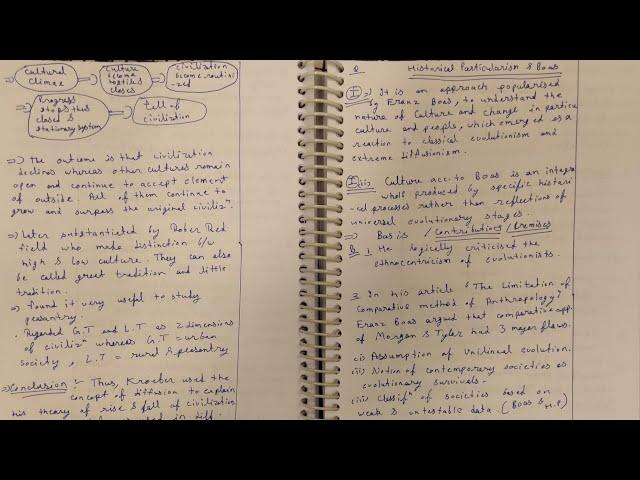 => Cultural Climax => Culture become hostile & closes => Civilization become routini-zed
=> Progress stops thus closed & stationary system => Fall of civilization
=> The outcome is that civilization
declines whereas other cultures remain
open and continue to accept element
of outside. All of them continue to
grow and surpess the original civilizⁿ.
=> Later substantiated by Rober Red
field who made distinction b/w
high & low culture. They can also
be called great tradition and little
tradition.
=> Found it very useful to study
peasantry.
• Regarded G.T and L.T as 2 dimensions
of civilizⁿ whereas G.T = urban
society, L.T = rural & peasentry
=> Conclusion :- Thus, Kroeber used the
concept of diffusion to explain
his theory of rise & fall of civilization
in diff.
Q Historical Particularism & Boas
I => It is an approach popularised
by Franz Boas, to understand the
nature of Culture and change in particu
culture and people, which emerged as a
reaction to classical evolutionism and
extreme diffusionism.
Culture acc. to Boas is an integra
whole produced by specific histori
-cal processes rather than reflections of
universal evolutionary stages.
=> Basis / Contributions / Premises
1. He logically criticised the
ethnocentricism of evolutionists.
2. In his article "The Limitation of
Comparative method of Anthropology"
Franz Boas argued that comparative app
of Morgan & Tylor had 3 major flaws.
(i) Assumption of Unilineal evolution.
(ii) Notion of contemporary societies as
evolutionary survivals.
(iii) Classifⁿ of societies based on
weak & untestable data. (Boas & H.P)